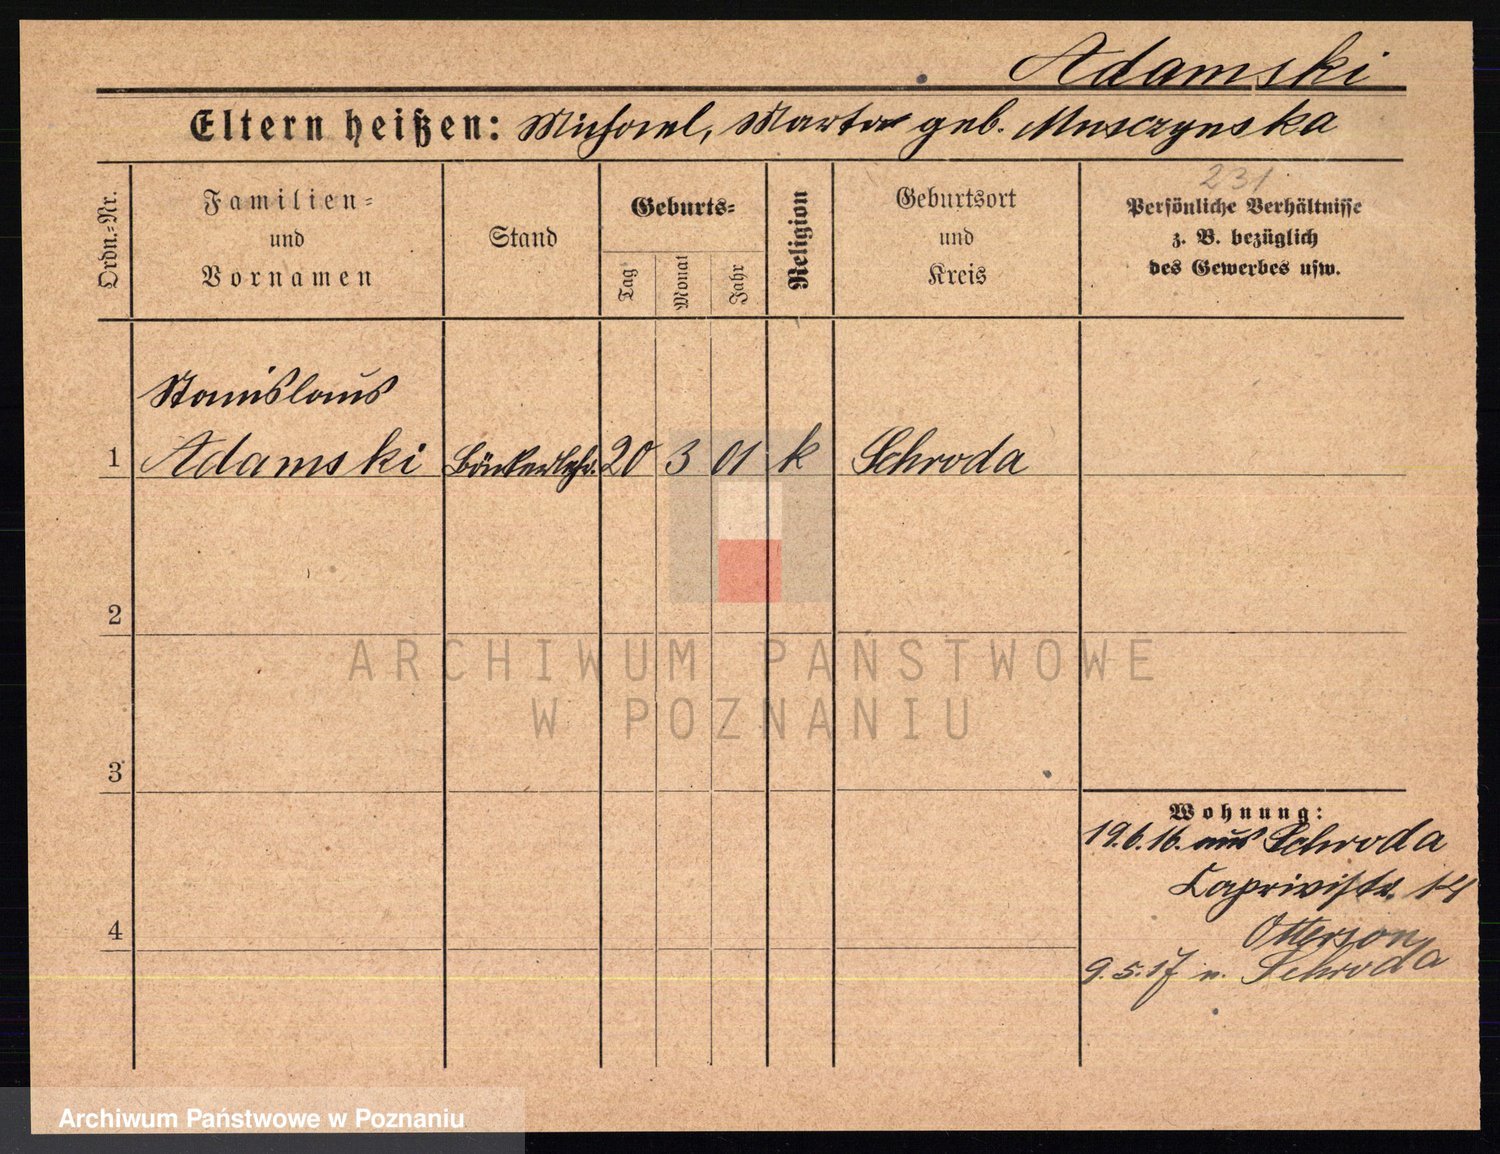 Adamski
Eltern heißen: Michael, Marta geb. Musczynska
231
Ordn.-Nr.
Familien-
und
Vornamen
Stand
Geburts-
Tag
Monat
Jahr
Religion
Geburtsort
und
Kreis
Persönliche Verhältnisse
z. B. bezüglich
des Gewerbes usw.
Stanislaus
1 Adamski Bäckerlehr. 20 3 01 k Schroda
2
3
4
Wohnung:
19.6.16. aus Schroda
Caprivistr. 14
Otterson
9.5.17 n. Schroda
ARCHIWUM PAŃSTWOWE
W POZNANIU
Archiwum Państwowe w Poznaniu